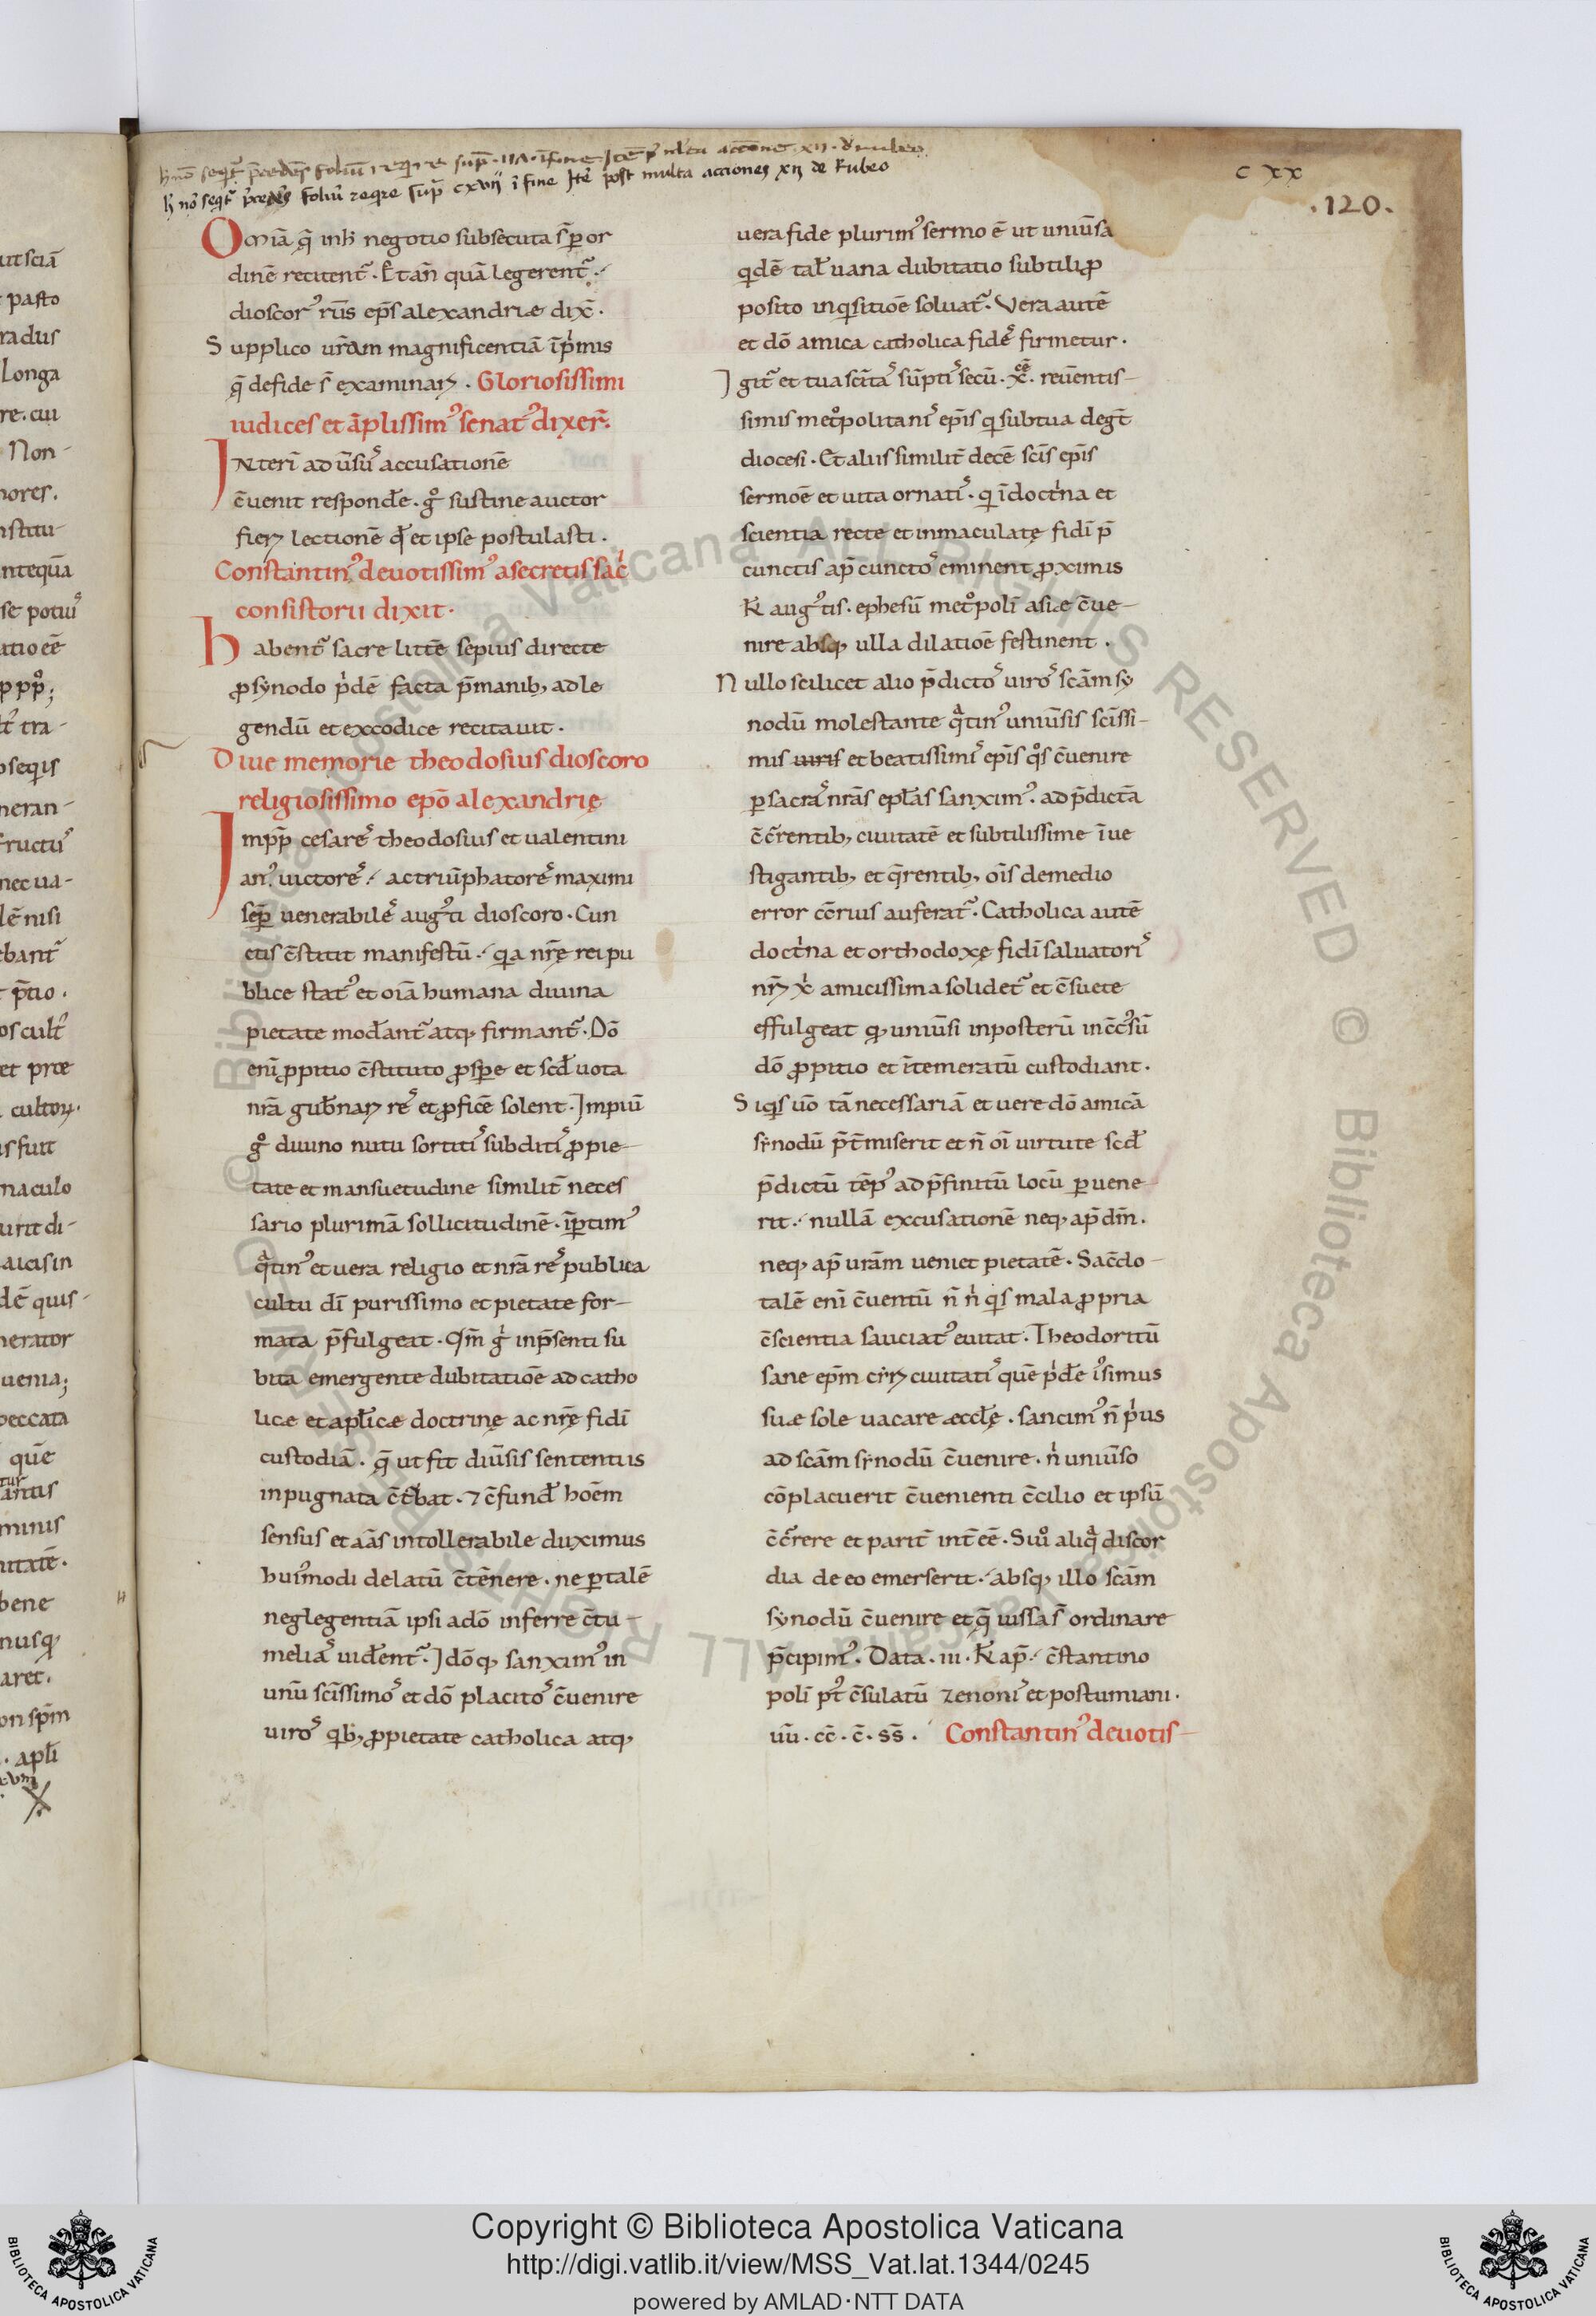 h̄ nō seqͭ p̄cedēs foliū reqͥre sup̄ cxvij ī fine Jtē post multa acciones xij de Rubeo
c xx
.120.
Omīa q̄ inh̄ negotio subsecuta s̄ ꝑ or
dinē recitent᷑. Et añ quā legerent᷑.
dioscorꝰ rīs ep̄s alexandriæ dix̄.
Supplico ur̄am magnificentiā īpͥmis
q̄ defide s̄ examinari. Gloriosissimi
iudices et āplissimꝰ senatꝰ dixer̄.
Interī ad ūsū accusationē
c̄uenit respondēe. gͦ sustine auctor
fieri lectionē q̄ et ipse postulasti.
Constantinꝰ deuotissimꝰ asecretis sac̄
consistorii dixit.
habent᷑ sacre litt̄e sepius directe
ꝓ synodo pͥdē facta p̄ manib; ad le
gendū et excodice recitauit.
Diue memorie theodosius dioscoro
religiosissimo epō alexandrię
Impp̄ cesares theodosius et ualentini
anꝰ. uictores. ac triūphatores maximi
semꝑ uenerabiles augꝰti dioscoro. Cun
ctis c̄stitit manifestū. qͥa nr̄ę rei pu
blice statꝰ et oīa humana diuina
pietate mod̄ant᷑ atq; firmant᷑. Dō
enī ꝓpitio c̄stituto ꝓspe et scd̄ uota
nr̄a gub̄nari res et ꝓficē solent. Impiū
gͦ diuino nutu sortitis subditis ꝓ pie-
tate et mansuetudine similit̄ neces
sario plurimā sollicitudinē. īꝑtimꝰ
qͣtinꝰ et uera religio et nr̄a res publica
cultu dī purissimo et pietate for-
mata p̄fulgeat. Qm̄ gͥ inp̄senti su
bita emergente dubitatiōe ad catho
licæ et apl̄icæ doctrinę ac nr̄ę fidī
custodiā. q̄ ut fit diūsis sententiis
inpugnata c̄tbat. ⁊ c̄fund̄ hoēm
sensus et aās intollerabile duximus
huiꝰmodi delatū c̄tēnere. ne ꝑ talē
neglegentiā ipsi adō inferre c̄tu-
melia uid̄ent᷑. Idōq; sanximꝰ in
unū sc̄issimos et dō placitos c̄uenire
uiros qͥb; ꝓ pietate catholica atq;
uera fide plurimꝰ sermo ē ut uniūsa
qͥdē tal̄ uana dubitatio subtili ꝓ
posito inqͥsitiōe soluat᷑. Vera autē
et dō amica catholica fides firmetur.
Igit᷑ et tua sc̄itas sūptis secū. x̄. reūentis-
simis metͦpolitanis ep̄is qͥ subtua degt̄
diocesi. Et aliis similit̄ decē sc̄is ep̄is
sermōe et uita ornatis. qͥ ī doctͥna et
scientia recte et inmaculatę fidī p̄
cunctis ap̄ cunctos eminent ꝓximis
kl̄ augꝰtis. ephesū metͦpolī asiæ c̄ue-
nire absq; ulla dilatiōe festinent.
Nullo scilicet alio p̄dictos uiros sc̄am sy
nodū molestante qͣtinꝰ uniūsis sc̄issi-
mis uiris et beatissimis ep̄is qͦs c̄uenire
ꝑ sacras nr̄as epl̄as sanximꝰ. ad p̄dictā
c̄c̄rentib; ciuitatē et subtilissime īue
stigantib; et q̄rentib; oīs demedio
error c̄rius auferat᷑. Catholica autē
doctͥna et orthodoxę fidī saluatoris
nr̄i xͥ amicissima solidet᷑ et c̄suete
effulgeat q; uniūsi inposterū inc̄c̄sū
dō ꝓpitio et ītemeratū custodiant.
Siqͥs uō tā necessariā et uere dō amicā
synodū p̄t̄miserit et n̄ oī uirtute scd̄
p̄dictū tēpꝰ ad p̄finitū locū ꝑuene
rit. nullā excusationē neq; ap̄ dm̄.
neq; ap̄ uram̄ ueniet pietatē. Sac̄do-
talē enī c̄uentū n̄ nͥ qͥs mala ꝓpria
c̄scientia sauciatꝰ euitat. Theodoritū
sane ep̄m cyri ciuitatis quē pͥdē iꝰsimus
suæ sole uacare æccl̄ę. sancimꝰ n̄ pͥus
ad sc̄am synodū c̄uenire. nͥ uniūso
cōplacuerit c̄uenienti c̄cilio et ipsū
c̄c̄rrere et parit̄ int̄ ēē. Siuͦ aliqͣ discor
dia de eo emerserit. absq; illo sc̄am
synodū c̄uenire et q̄ iussa s̄ ordinare
p̄cipimꝰ. Data. iii. kl̄ ap̄. c̄stantino
polī pꝰt c̄sulatū zenonis et postumiani.
uū. cc̄. c̄. ss̄. Constantinꝰ deuotis-
Copyright © Biblioteca Apostolica Vaticana
http://digi.vatlib.it/view/MSS_Vat.lat.1344/0245
powered by AMLAD·NTT DATA